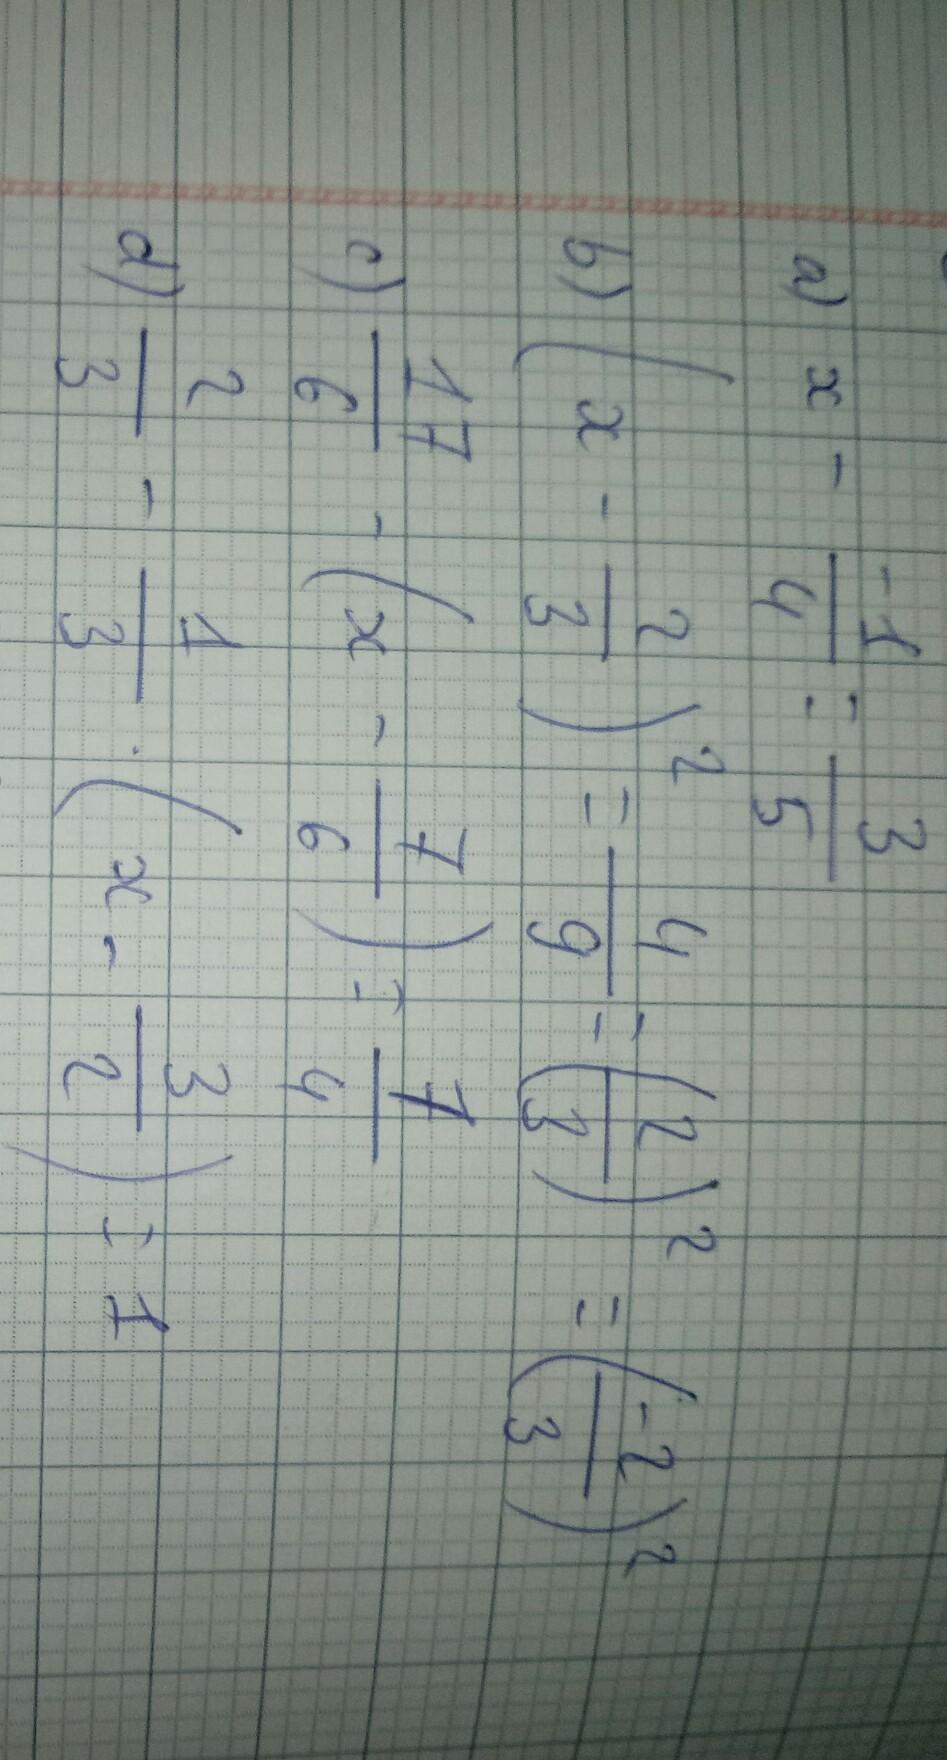 a) x - -1/4 = 3/5
b) (x - 2/3)² = 4/9 = (2/3)² = (-2/3)²
c) 17/6 - (x - 7/6) = 7/4
d) 2/3 - 1/3 . (x - 3/2) = 1